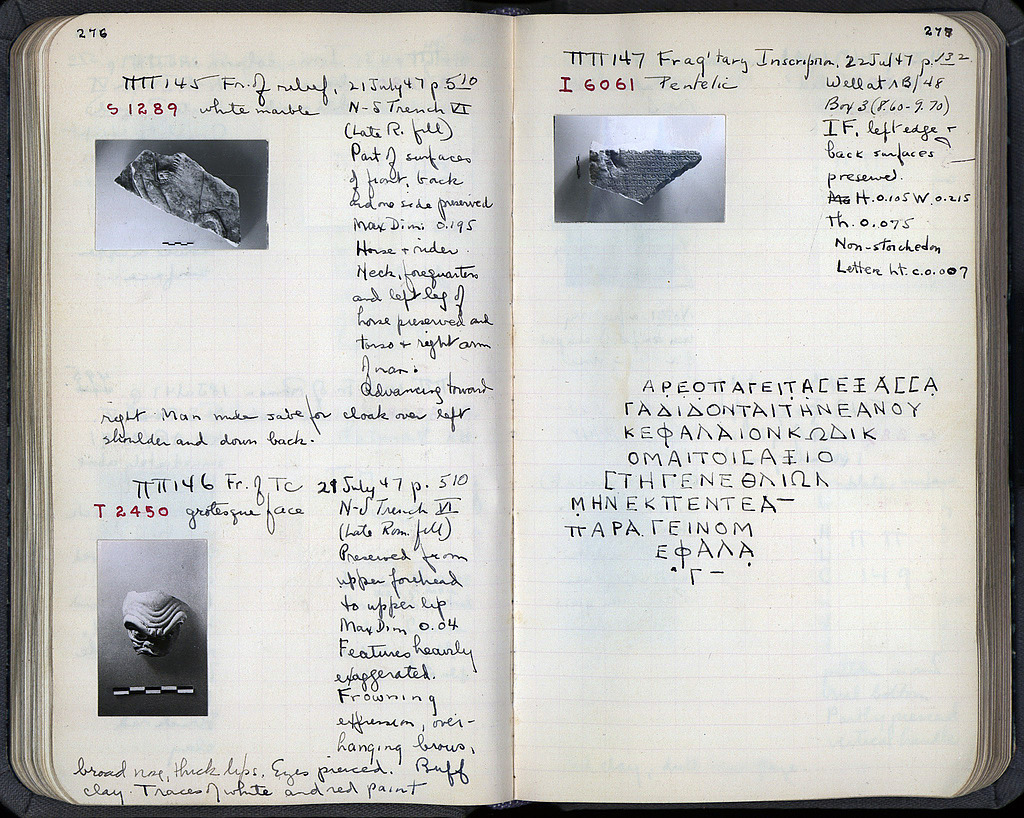 276
ΠΠ 145 Fr. of relief, 21 July 47 p. 510
S 1289 white marble N-S Trench VI
(Late R. fill)
Part of surfaces
of front, back
and one side preserved
Max Dim: 0.195
Horse + rider.
Neck, forequarters
and left leg of
horse preserved and
torso + right arm
of man.
Advancing toward
right Man nude save for cloak over left
shoulder and down back.
ΠΠ 146 Fr. of TC 21 July 47 p. 510
T 2450 grotesque face N-S Trench VI
(Late Rom. fill)
Preserved from
upper forehead
to upper lip
Max Dim 0.04
Features heavily
exaggerated.
Frowning
expression, over-
hanging brows,
broad nose, thick lips. Eyes pierced. Buff
clay. Traces of white and red paint
277
ΠΠ 147 Frag'tary Inscription, 22 Jul 47 p. 132
I 6061 Pentelic Well at 1B/48
Box 3 (8.60-9.70)
IF, left edge +
back surfaces
preserved.
H. 0.105 W. 0.215
Th. 0.075
Non-stoichedon
Letter ht. c. 0.007
ΑΡΕΟΠΑΓΕΙΤΑΣΕΞΑΣΣΑ
ΓΑΔΙΔΟΝΤΑΙΤΗΝΕΑΝΟΥ
ΚΕΦΑΛΑΙΟΝΚΩΔΙΚ
ΟΜΑΙΤΟΙΣΑΞΙΟ
ΣΤΗΓΕΝΕΘΛΙΩΝ
ΜΗΝΕΚΠΕΝΤΕΑ
ΠΑΡΑΓΕΙΝΟΜ
ΕΦΑΛΑ
Γ